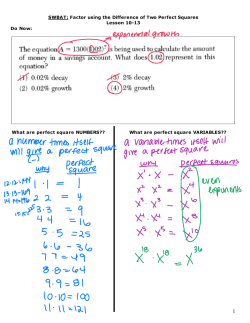 SWBAT: Factor using the Difference of Two Perfect Squares
Lesson 10-13
Do Now:
exponential growth
The equation A = 1300(1.02)⁷ is being used to calculate the amount
of money in a savings account. What does 1.02 represent in this
equation?
(1) 0.02% decay (3) 2% decay
(2) 0.02% growth (4) 2% growth
What are perfect square NUMBERS??
a number times itself
will give a perfect square
why perfect square
1·1 = 1
2·2 = 4
3·3 = 9
4·4 = 16
5·5 = 25
6·6 = 36
7·7 = 49
8·8 = 64
9·9 = 81
10·10 = 100
11·11 = 121
12·12=144
13·13=169
14·14=196
What are perfect square VARIABLES??
a variable times itself will
give a perfect square
why perfect squares
x¹ · x = x²
x² · x² = x⁴
x³ · x³ = x⁶
x⁴ · x⁴ = x⁸
x⁵ · x⁵ = x¹⁰
even
exponents
x¹⁸ · x¹⁸ = x³⁶
1